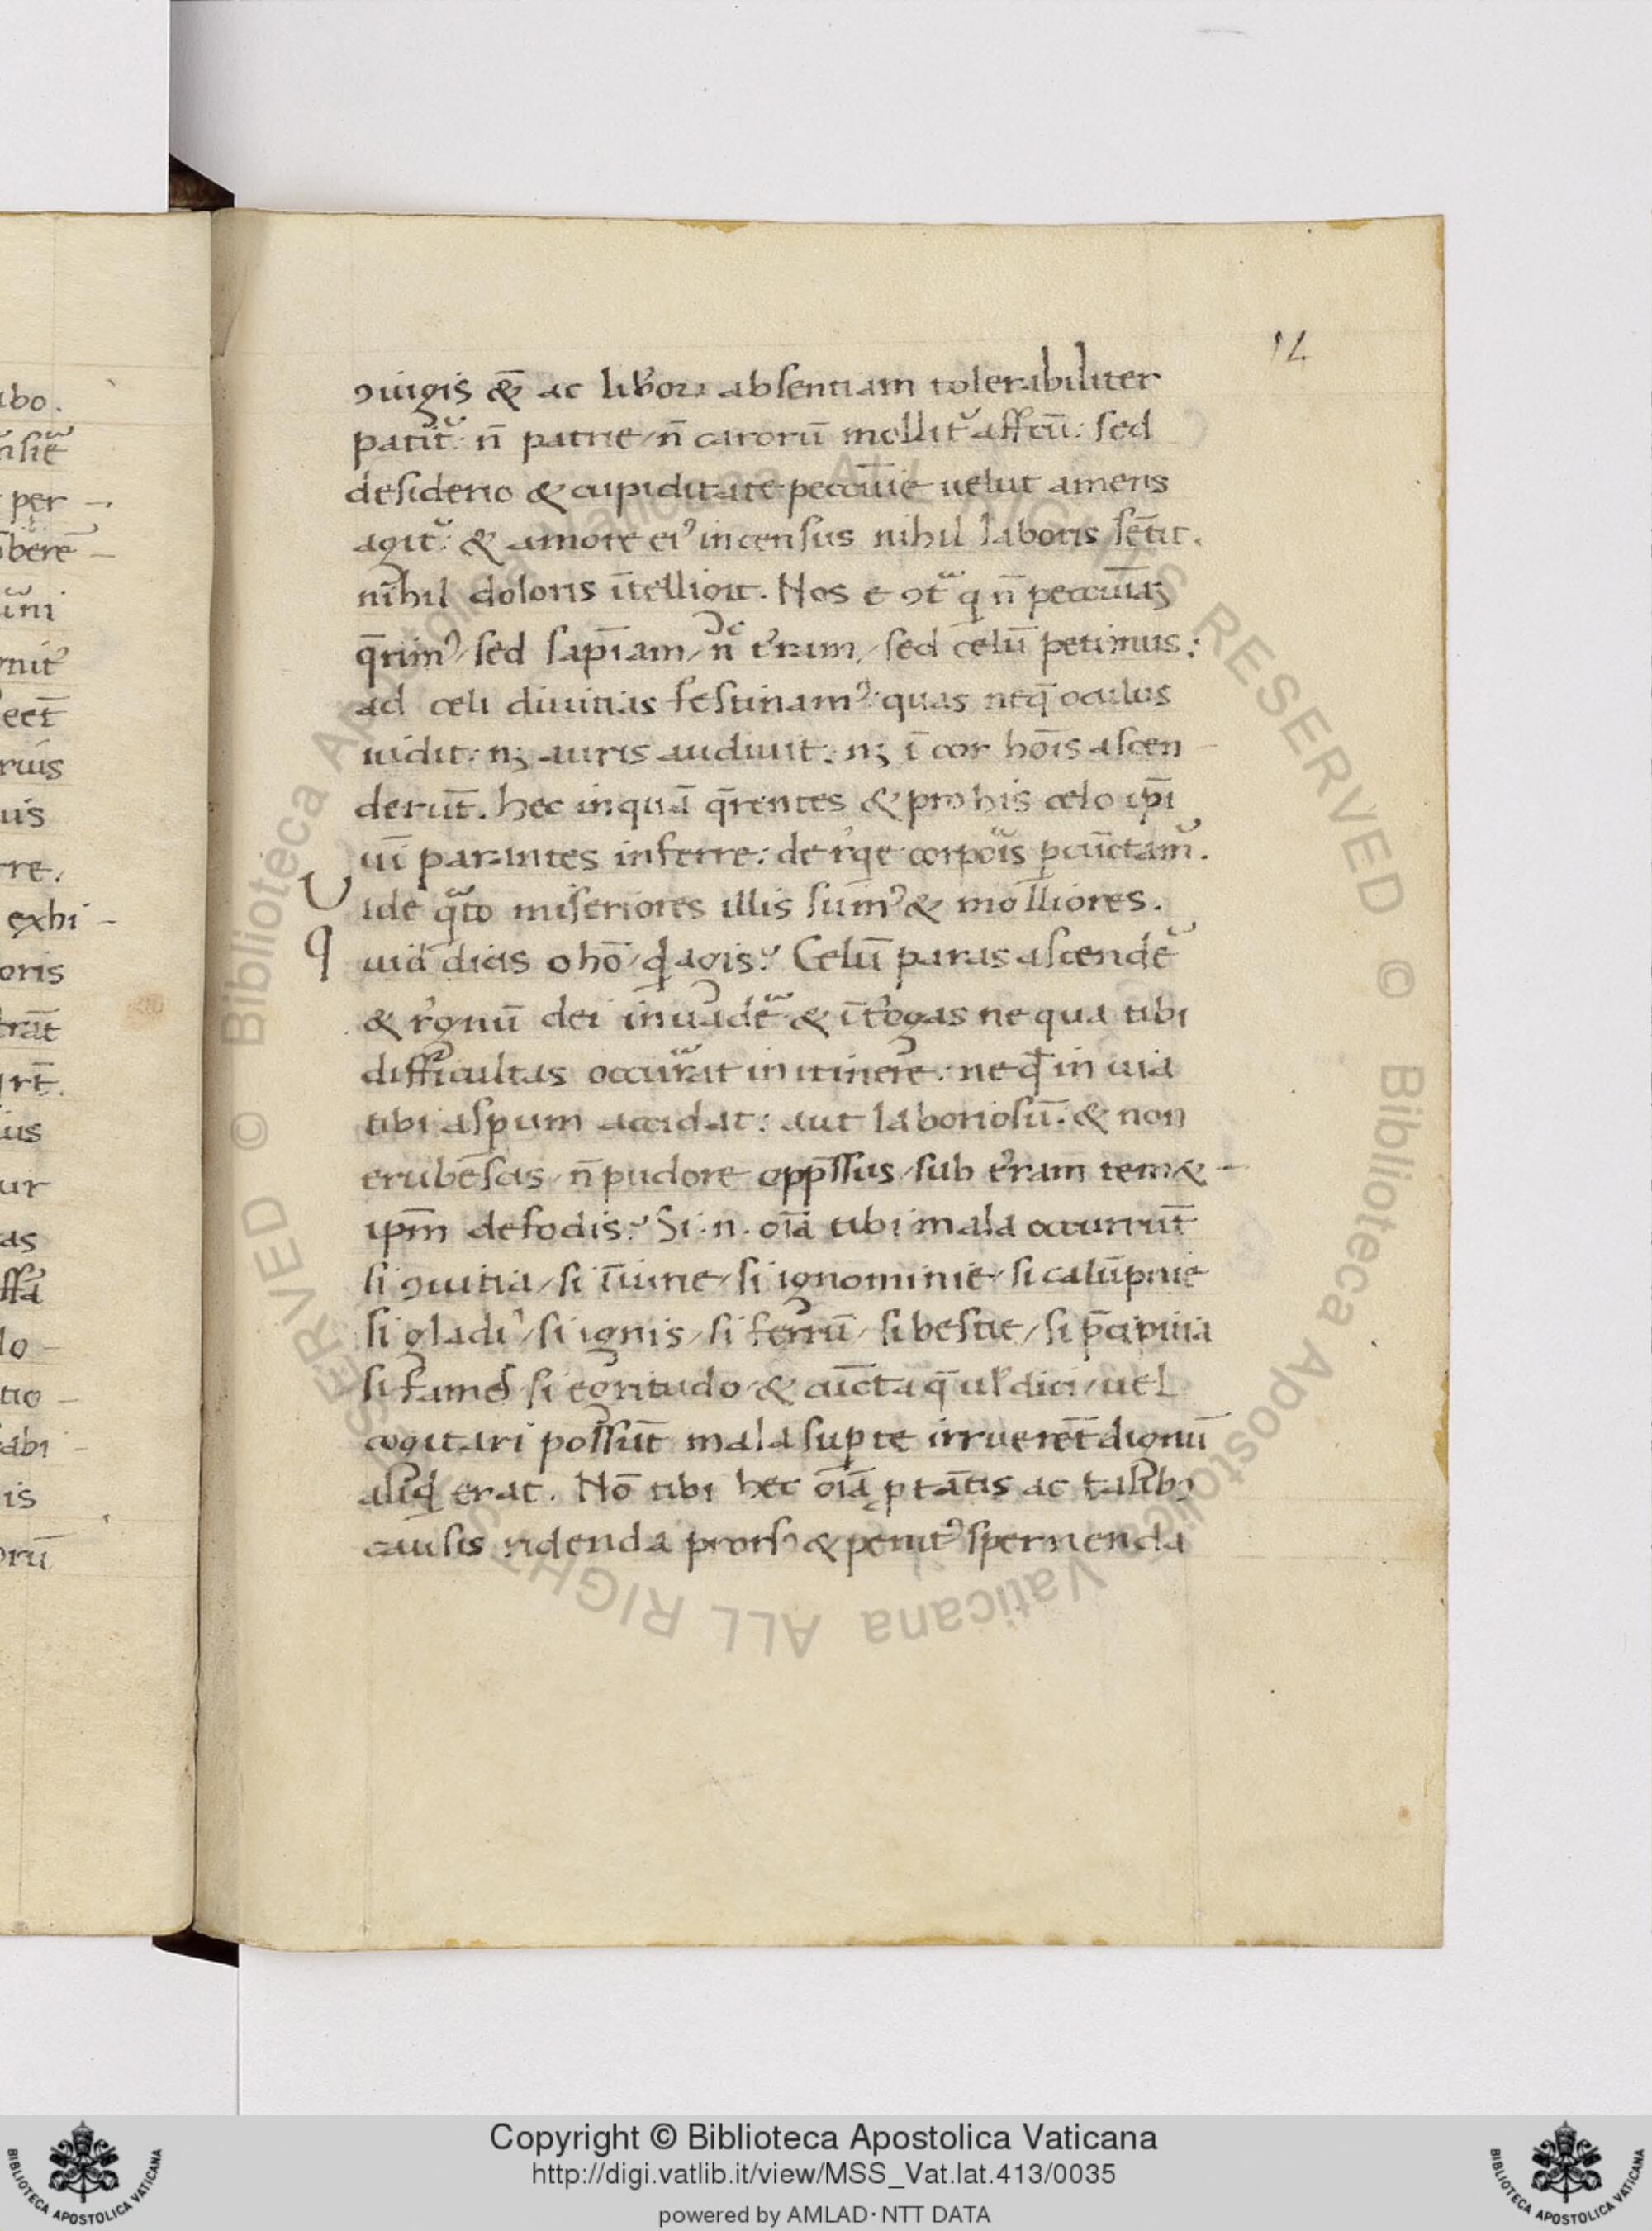 14
ꝯiugis & ac liboꝝ absentiam tolerabiliter
patit᷑: n̄ patrie / n̄ carorū mollit᷑ affcū: sed
desiderio & cupiditate peccūie uelut amens
agit᷑: & amore eiꝰ incensus nihil laboris sētit.
nihil doloris ītelligit. Nos e ꝯt̃ q n̄ peccuīaꝫ
q̄rimꝰ / sed sapīam / n̄ t'ram / sed celū petimus:
ad celi diuitias festinamꝰ: quas neq̄ oculus
uidit: nꝫ auris audiuit: nꝫ ī cor hoīs ascen
derūt. hec inquā q̄rentes & pro his celo ip̄i
uī parantes inferre: de r'qe corpois ꝑcūctam᷑.
Vide q̃to miseriores illis sumꝰ & molliores.
Quid dicis o hō / qd agis? Celū paras ascendē
& r'gnū dei inuadē & īt'ogas ne qua tibi
difficultas occurat in itinere: ne qd in uia
tibi asꝑum accidat: aut laboriosū: & non
erubescis / n̄ pudore opp̄ssus / sub t'ram temet
ipm̄ defodis? Si .n. oīa tibi mala occurrūt
si ꝯuitia / si īiurie / si ignominie / si calūpnie
si gladiꝰ / si ignis / si ferrū / si bestie / si p̄cipitia
si fames si egritudo & cūcta q̄ ul' dici / uel
cogitari possūt mala suꝑ te irruerēt dignū
aliqd erat. Nō tibi hec oīa ꝓ tātis ac talibꝰ
causis ridenda prorsꝰ & penitꝰ spernenda
Copyright © Biblioteca Apostolica Vaticana
http://digi.vatlib.it/view/MSS_Vat.lat.413/0035
powered by AMLAD·NTT DATA